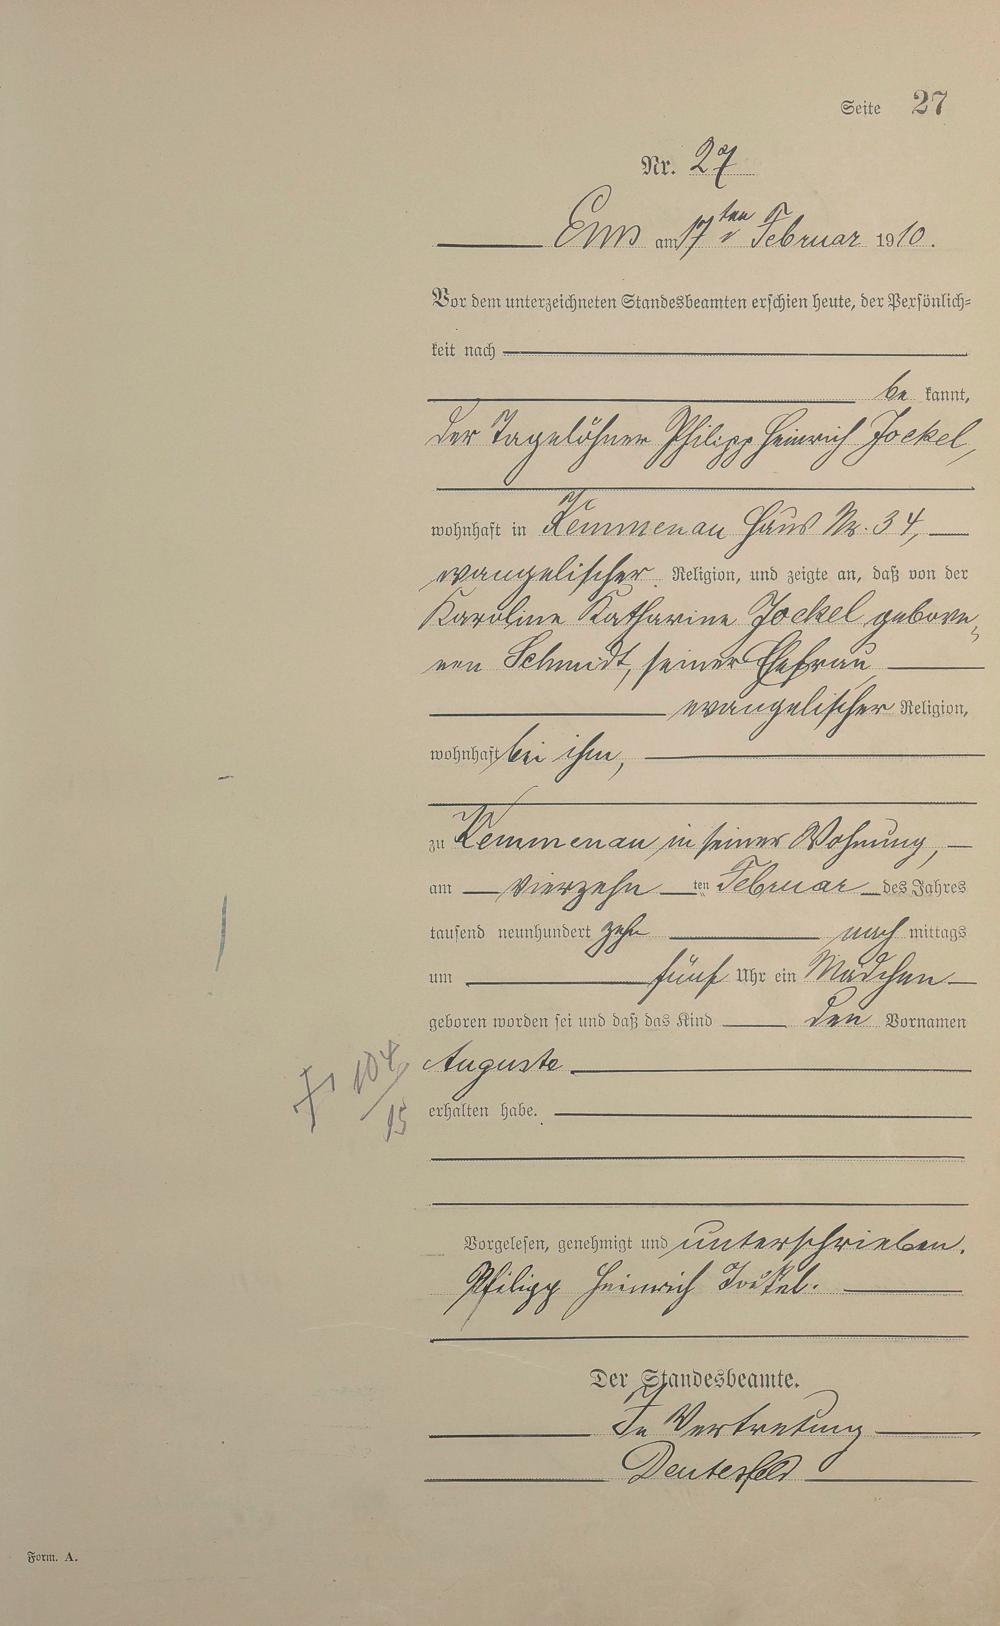 Seite 27
Nr. 27
Ems am 17ten Februar 1910.
Vor dem unterzeichneten Standesbeamten erschien heute, der Persönlich-
keit nach
be kannt,
der Tagelöhner Philipp Heinrich Jockel,
wohnhaft in Kemmenau Haus Nr. 34,
evangelischer Religion, und zeigte an, daß von der
Karoline Katharine Jockel gebore-
nen Schmidt, seiner Ehefrau
evangelischer Religion,
wohnhaft bei ihm,
zu Kemmenau in seiner Wohnung,
am vierzehn ten Februar des Jahres
tausend neunhundert zehn nach mittags
um fünf Uhr ein Mädchen
geboren worden sei und daß das Kind den Vornamen
Auguste
† 104
15
erhalten habe.
Vorgelesen, genehmigt und unterschrieben.
Philipp Heinrich Jockel.
Der Standesbeamte.
In Vertretung
Form. A.